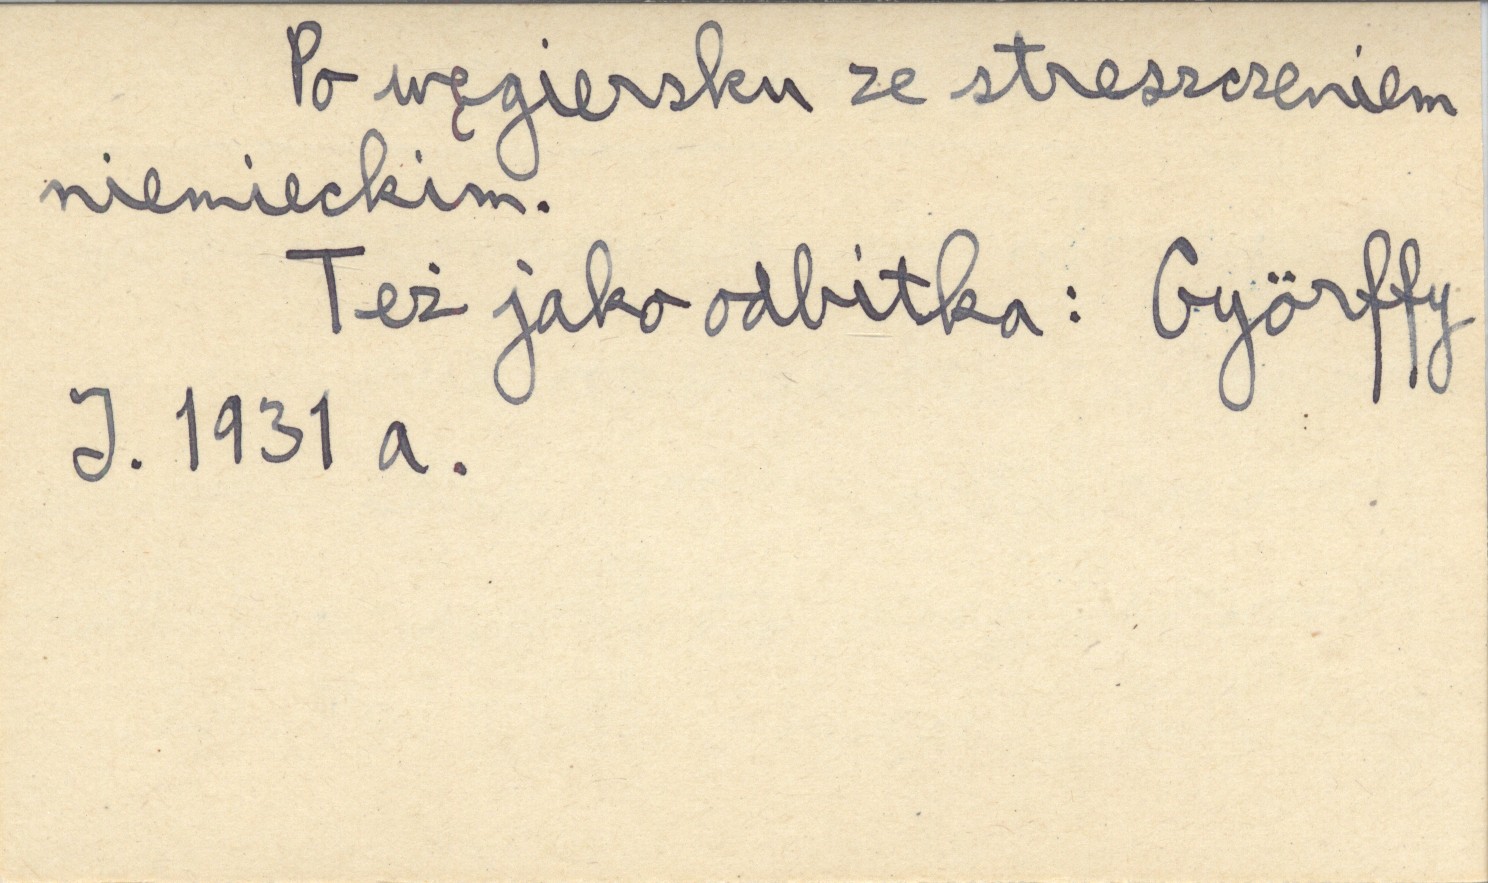 Po węgiersku ze streszczeniem
niemieckim.
Też jako odbitka: Györffy
J. 1931 a.